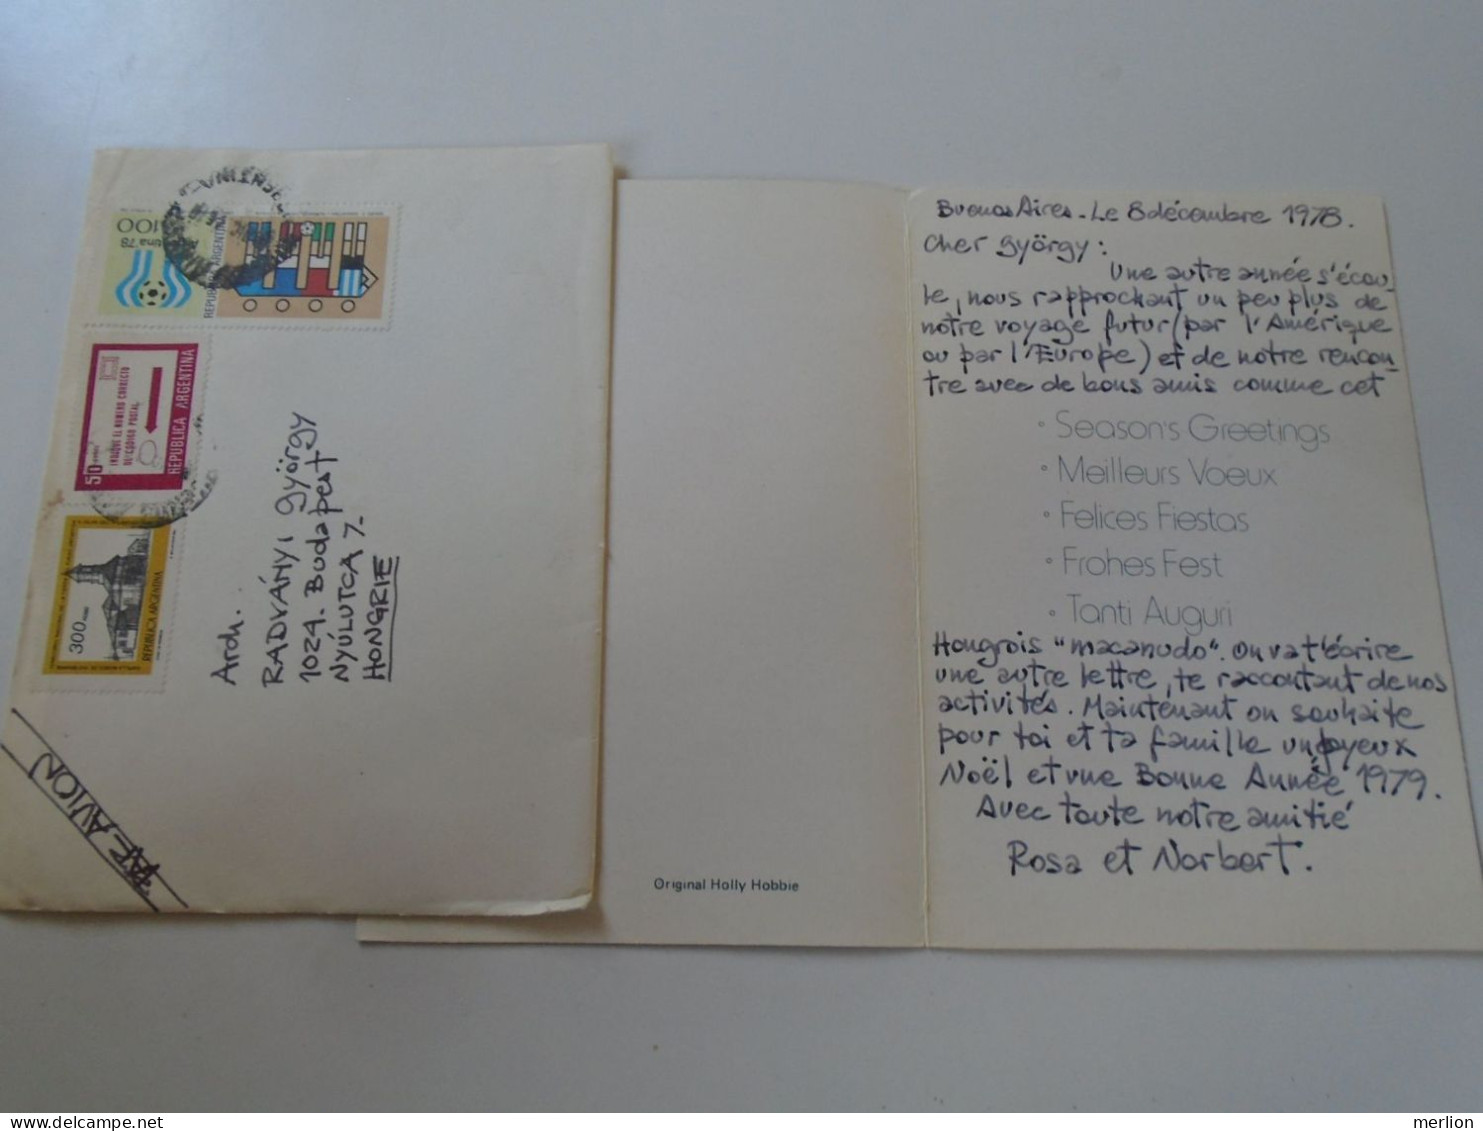 REPUBLICA ARGENTINA
Argentina 78
100
50
INDIQUE EL NUMERO CORRECTO
DE CODIGO POSTAL
REPUBLICA ARGENTINA
300
REPUBLICA ARGENTINA
Arch.
RADVÁNYI György
1024. Budapest
NYÚLUTCA 7.
HONGRIE
PAR AVION
Original Holly Hobbie
Buenos Aires. Le 8 décembre 1978.
Cher György:
Une autre année s'écou-
le, nous rapprochant un peu plus de
notre voyage futur (par l'Amérique
ou par l'Europe) et de notre rencon-
tre avec de bons amis comme cet
° Season's Greetings
° Meilleurs Voeux
° Felices Fiestas
° Frohes Fest
° Tanti Auguri
Hongrois "macanudo". On va t'écrire
une autre lettre, te racontant de nos
activités. Maintenant on souhaite
pour toi et ta famille un joyeux
Noël et une Bonne Année 1979.
Avec toute notre amitié
Rosa et Norbert.
merlion